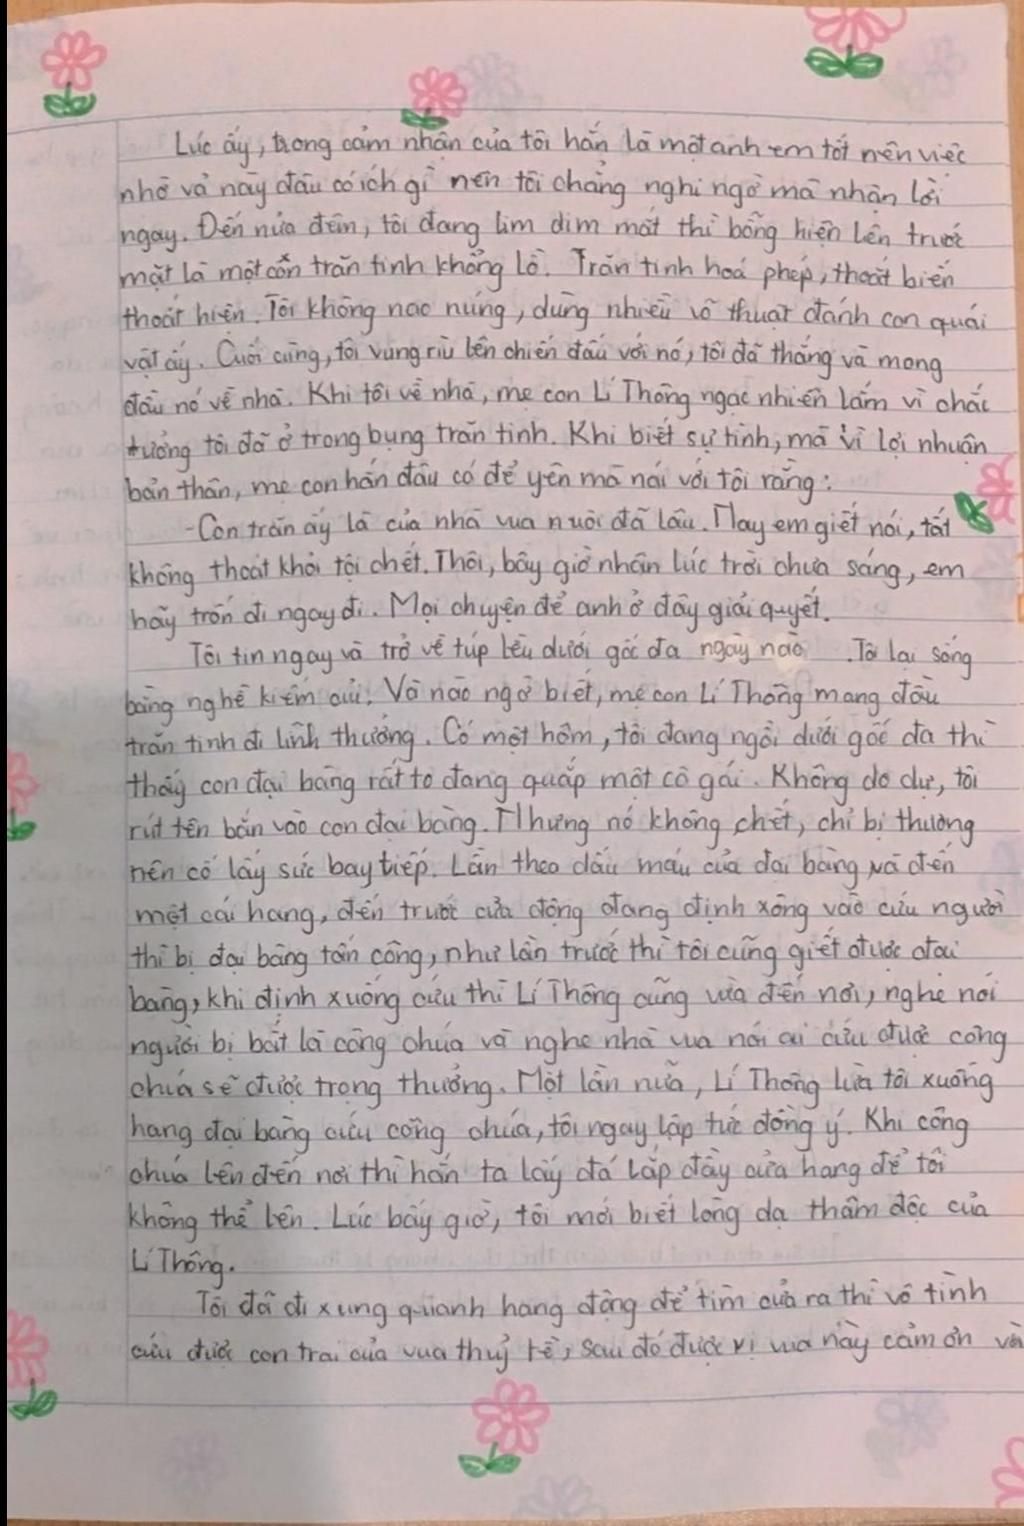 Lúc ấy, trong cảm nhận của tôi hắn là một anh em tốt nên việc
nhỏ vả này đâu có ích gì nên tôi chẳng nghi ngờ mà nhận lời
ngay. Đến nửa đêm, tôi đang lim dim mắt thì bỗng hiện lên trước
mặt là một côn trăn tinh khổng lồ. Trăn tinh hoá phép, thoắt biến
thoắt hiện. Tôi không nao núng, dùng nhiều võ thuật đánh con quái
vật ấy. Cuối cùng, tôi vung rìu lên chiến đấu với nó, tôi đã thắng và mang
đầu nó về nhà. Khi tôi về nhà, mẹ con Lí Thông ngạc nhiên lắm vì chắc
tưởng tôi đã ở trong bụng trăn tinh. Khi biết sự tình, mà vì lợi nhuận
bản thân, mẹ con hắn đâu có để yên mà nói với tôi rằng:
-Con trăn ấy là của nhà vua nuôi đã lâu. Nay em giết nói, tất
không thoát khỏi tội chết. Thôi, bây giờ nhân lúc trời chưa sáng, em
hãy trốn đi ngay đi. Mọi chuyện để anh ở đây giải quyết.
Tôi tin ngay và trở về túp lều dưới gốc đa ngày nào .Tôi lại sống
bằng nghề kiếm củi. Và nào ngờ biết, mẹ con Lí Thông mang đầu
trăn tinh đi lĩnh thưởng. Có một hôm, tôi đang ngồi dưới gốc đa thì
thấy con đại bàng rất to đang quắp một cô gái. Không do dự, tôi
rút tên bắn vào con đại bàng. Nhưng nó không chết, chỉ bị thương
nên cố lấy sức bay tiếp. Lần theo dấu máu của đại bàng và đến
một cái hang, đến trước cửa động đang định xông vào cứu người
thì bị đại bàng tấn công, như lần trước thì tôi cũng giết được đại
bàng, khi định xuống cứu thì Lí Thông cũng vừa đến nơi, nghe nói
người bị bắt là công chúa và nghe nhà vua nói ai cứu được công
chúa sẽ được trọng thưởng. Một lần nữa, Lí Thông lừa tôi xuống
hang đại bàng cứu công chúa, tôi ngay lập tức đồng ý. Khi công
chúa lên đến nơi thì hắn ta lấy đá lấp đầy cửa hang để tôi
không thể lên. Lúc bấy giờ, tôi mới biết lòng dạ thâm độc của
Lí Thông.
Tôi đã đi xung quanh hang động để tìm cửa ra thì vô tình
cứu được con trai của vua thuỷ tề, sau đó được vị vua này cảm ơn và